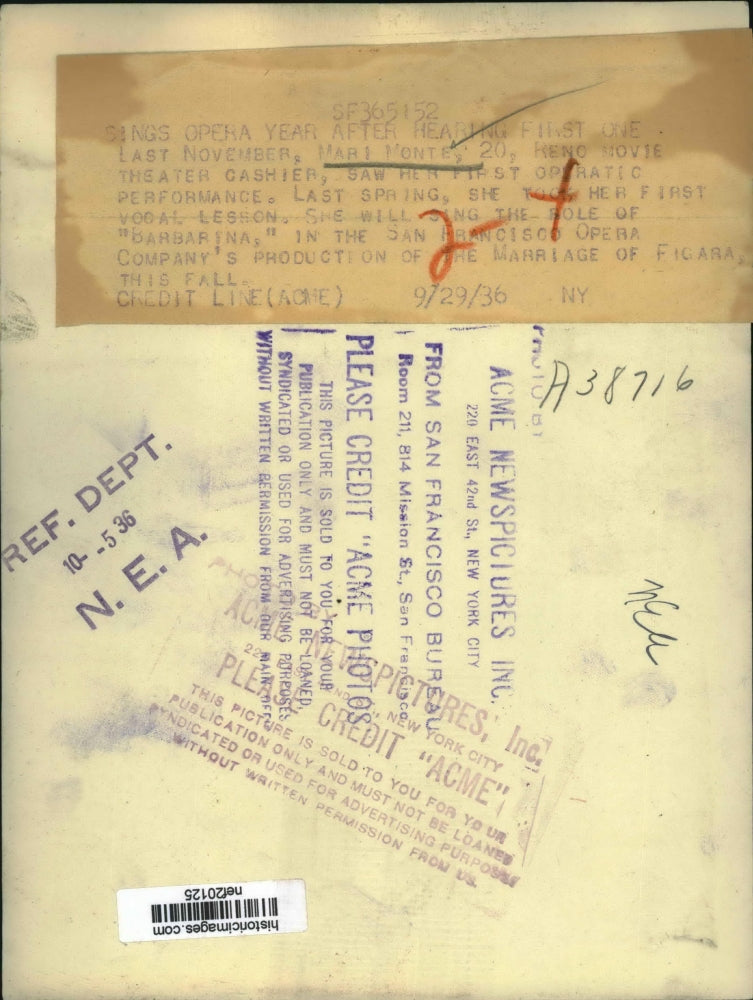 SF365152
SINGS OPERA YEAR AFTER HEARING FIRST ONE
LAST NOVEMBER, MARI MONTE, 20, RENO MOVIE
THEATER CASHIER, SAW HER FIRST OPERATIC
PERFORMANCE. LAST SPRING, SHE TOOK HER FIRST
VOCAL LESSON. SHE WILL SING THE ROLE OF
"BARBARINA," IN THE SAN FRANCISCO OPERA
COMPANY'S PRODUCTION OF THE MARRIAGE OF FIGARA,
THIS FALL.
CREDIT LINE (ACME) 9/29/36 NY
2-4
A38716
ACME NEWSPICTURES INC.
220 EAST 42nd St., NEW YORK CITY
FROM SAN FRANCISCO BUREAU
Room 211, 814 Mission St., San Francisco
PLEASE CREDIT "ACME PHOTOS"
THIS PICTURE IS SOLD TO YOU FOR YOUR
PUBLICATION ONLY AND MUST NOT BE LOANED,
SYNDICATED OR USED FOR ADVERTISING PURPOSES
WITHOUT WRITTEN PERMISSION FROM OUR MAIN OFFICE
REF. DEPT.
10--5 36
N. E. A.
PHOTO BY
ACME NEWSPICTURES, Inc.
NEW YORK CITY
PLEASE CREDIT "ACME"
THIS PICTURE IS SOLD TO YOU FOR YOUR
PUBLICATION ONLY AND MUST NOT BE LOANED
SYNDICATED OR USED FOR ADVERTISING PURPOSES
WITHOUT WRITTEN PERMISSION FROM US.
historicimages.com
nef20125